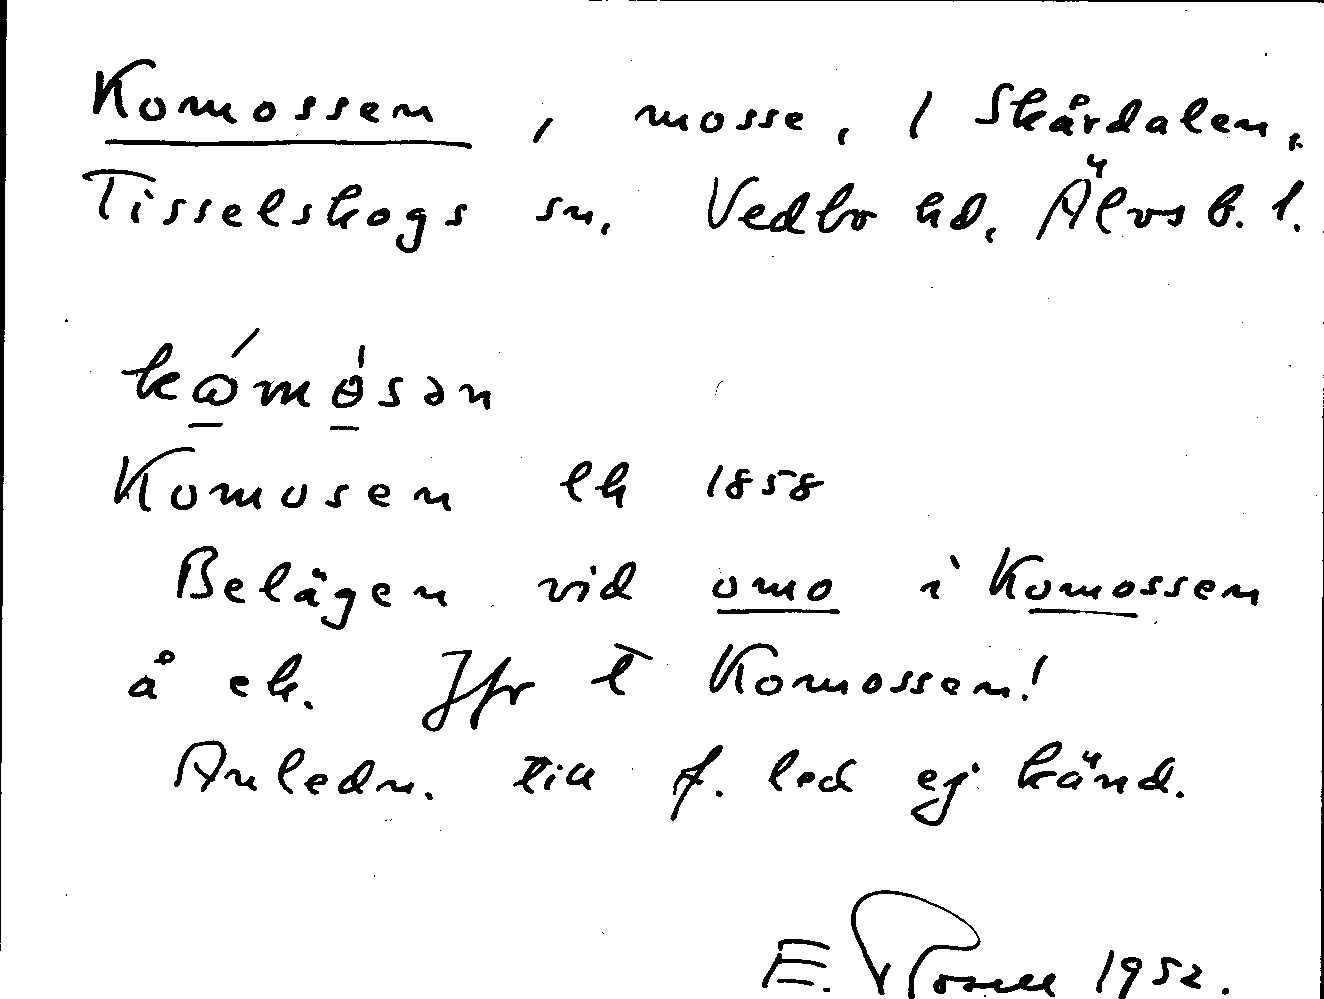 Komossen, mosse, 1 Skårdalen,
Tisselskogs sn. Vedbo hd, Älvsb. l.
kωmɵsən
Komosen lk 1858
Belägen vid omo i Komossen
å ek. Jfr t Komossen!
Anledn. till f. led ej känd.
E. Rosell 1952.